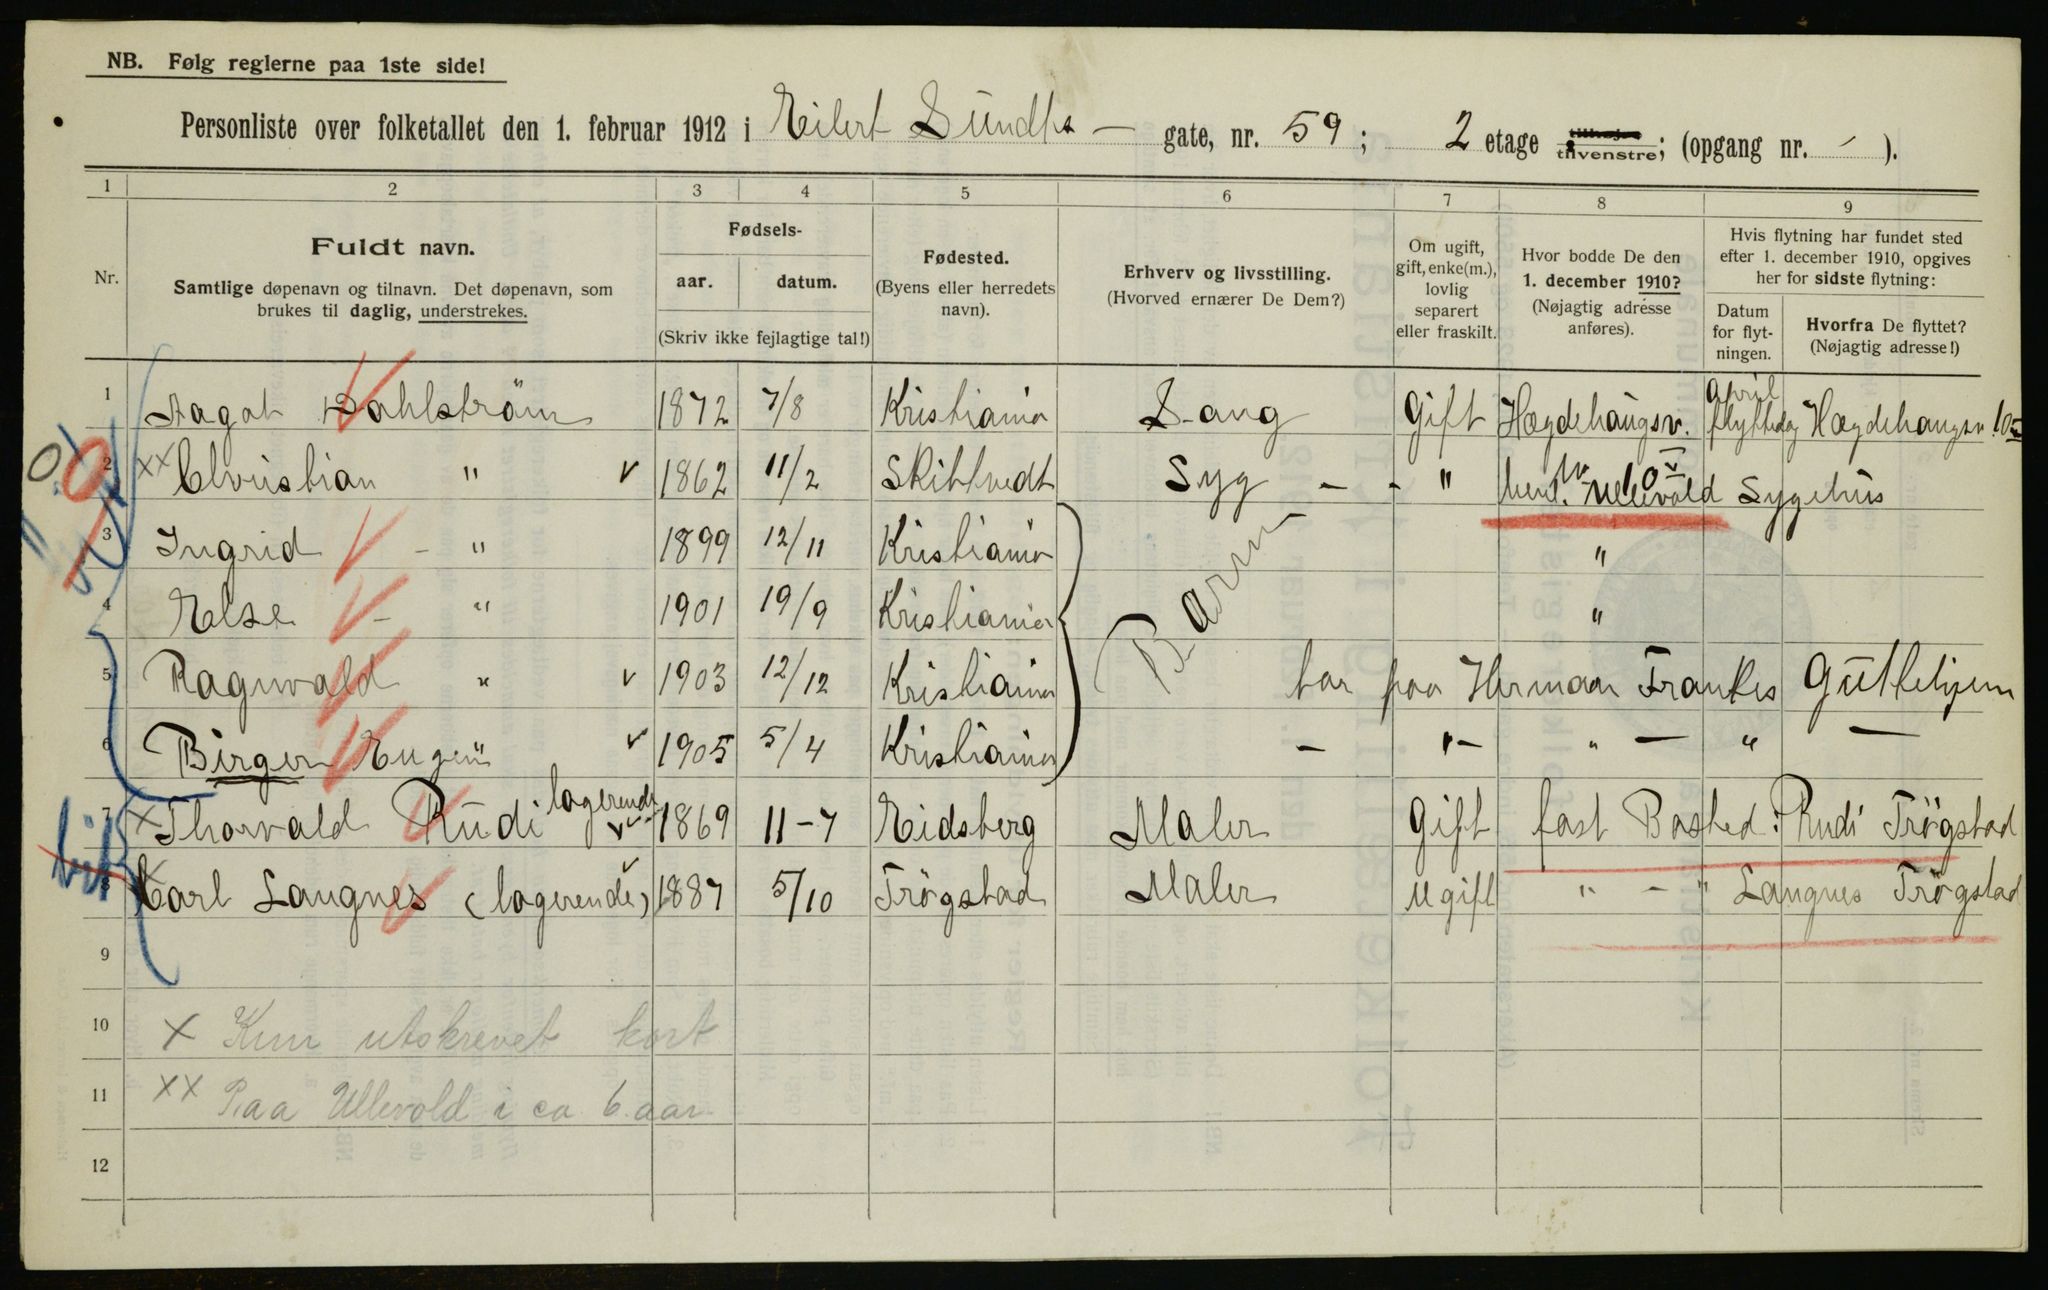 NB. Følg reglerne paa 1ste side!
Personliste over folketallet den 1. februar 1912 i Eilert Sundts — gate, nr. 59; 2 etage tilhøjre tilvenstre; (opgang nr. - ).
1 2 3 4 5 6 7 8 9
Nr.
Fuldt navn.
Samtlige døpenavn og tilnavn. Det døpenavn, som
brukes til daglig, understrekes.
Fødsels-
aar. datum.
(Skriv ikke fejlagtige tal!)
Fødested.
(Byens eller herredets
navn).
Erhverv og livsstilling.
(Hvorved ernærer De Dem?)
Om ugift,
gift, enke(m.),
lovlig
separert
eller fraskilt.
Hvor bodde De den
1. december 1910?
(Nøjagtig adresse
anføres).
Hvis flytning har fundet sted
efter 1. december 1910, opgives
her for sidste flytning:
Datum
for flyt-
ningen.
Hvorfra De flyttet?
(Nøjagtig adresse!)
1 Aagot Dahlström 1872 7/8 Kristiania Sang Gift Hægdehaugsv. 10 V april flyttedag Hægdehaugsv 10 V
2 xx Christian " v 1862 11/2 Skibtvedt Syg — - " Ullevold Sygehus
3 Ingrid - " 1899 12/11 Kristiania Barn "
4 Else - " 1901 19/9 Kristiania "
5 Ragnvald " v 1903 12/12 Kristiania bor paa Herman Frankes Guttehjem
6 Birger Eugen " v 1905 5/4 Kristiania — " — " — " —
7 x Thorvald Rudi logerende 1869 11-7 Eidsberg Maler Gift fast Bosted: Rudi Trögstad
8 x Carl Langnes (logerende) 1887 5/10 Trögstad Maler Ugift " — " Langnes Trögstad
9
10 x Kun utskrevet kort
11 xx Paa Ullevold i ca 6 aar
12